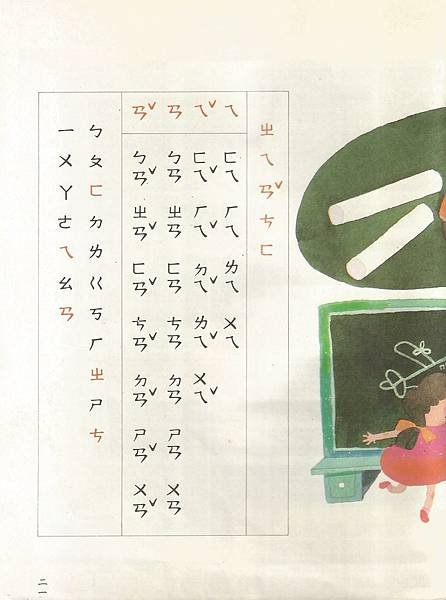 ㄓ ㄟ ㄢˇ ㄘ ㄈ
ㄟ ㄈㄟ ㄏㄟ ㄌㄟ ㄨㄟ
ㄟˇ ㄈㄟˇ ㄏㄟˇ ㄉㄟˇ ㄌㄟˇ ㄨㄟˇ
ㄢ ㄅㄢ ㄓㄢ ㄈㄢ ㄘㄢ ㄉㄢ ㄕㄢ ㄨㄢ
ㄢˇ ㄅㄢˇ ㄓㄢˇ ㄈㄢˇ ㄘㄢˇ ㄉㄢˇ ㄕㄢˇ ㄨㄢˇ
ㄅ ㄆ ㄈ ㄉ ㄌ ㄍ ㄎ ㄏ ㄓ ㄕ ㄘ
ㄧ ㄨ ㄚ ㄜ ㄟ ㄠ ㄢ
二一